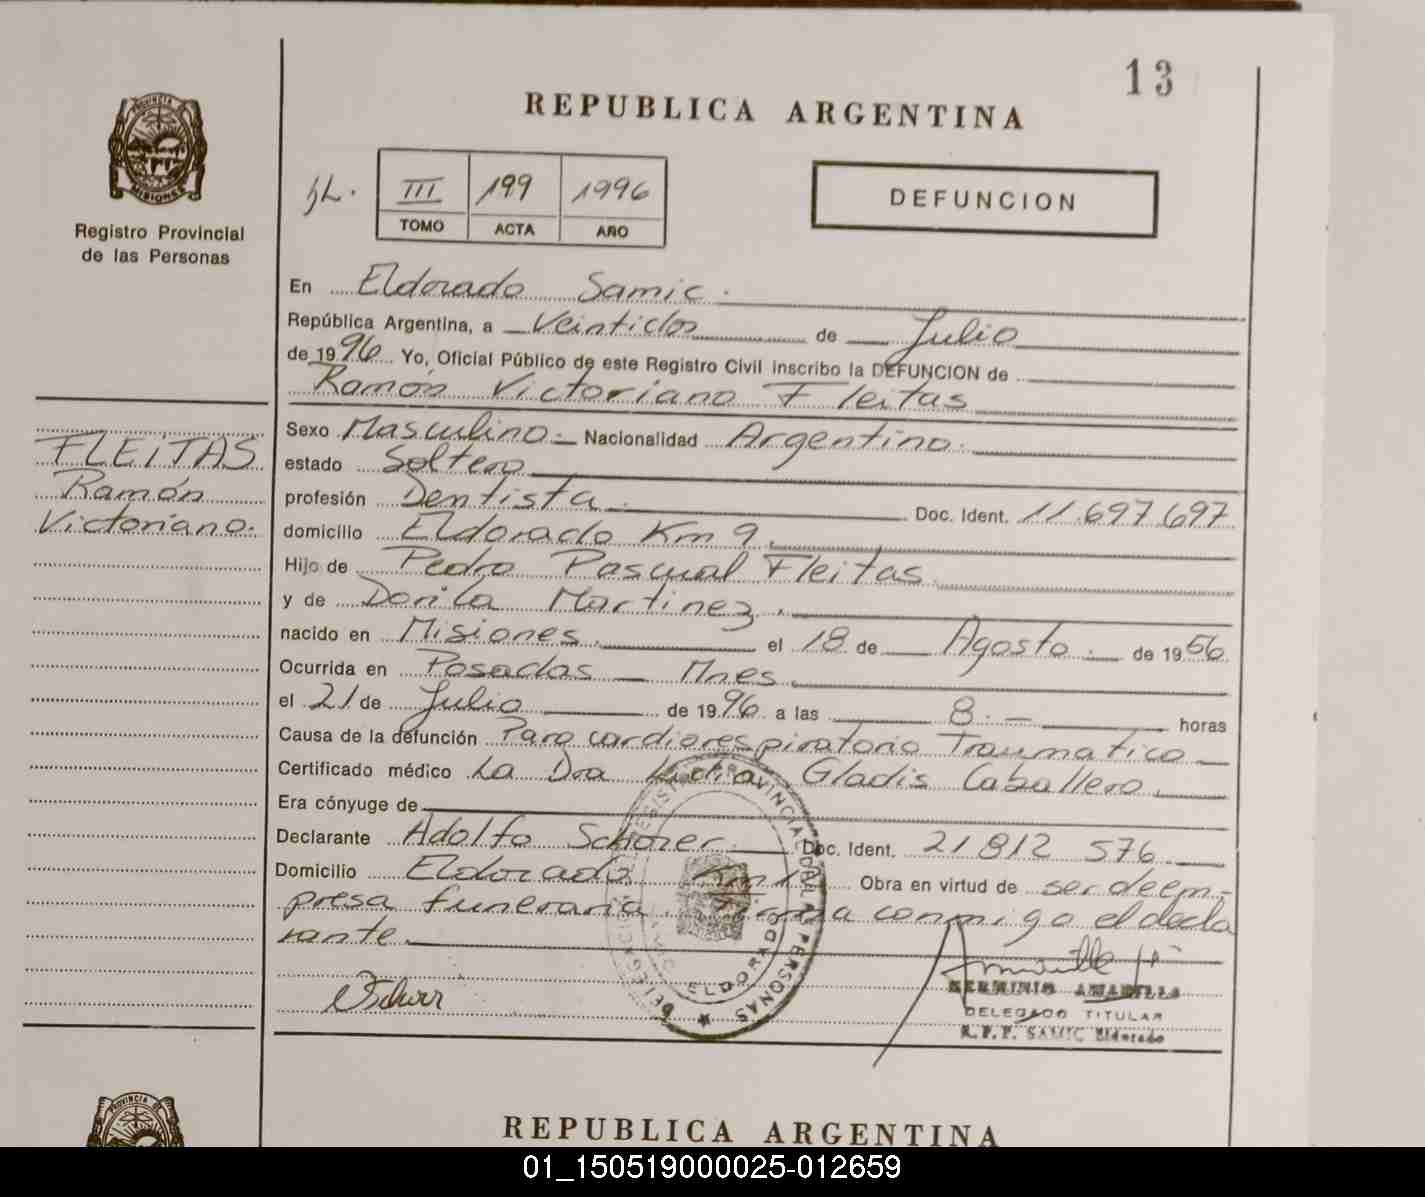 13
REPUBLICA ARGENTINA
PROVINCIA DE
MISIONES
Registro Provincial
de las Personas
III 199 1996
TOMO ACTA AÑO
DEFUNCION
En Eldorado Samic.
República Argentina, a Veintidos de Julio
de 1996 Yo, Oficial Público de este Registro Civil inscribo la DEFUNCION de
Ramón Victoriano Fleitas
FLEITAS
Ramón
Victoriano.
Sexo Masculino.- Nacionalidad Argentino.
estado Soltero
profesión Dentista. Doc. Ident. 11.697.697
domicilio Eldorado Km 9.
Hijo de Pedro Pascual Fleitas
y de Dorila Martinez.
nacido en Misiones. el 18 de Agosto. de 1956
Ocurrida en Posadas - Mnes.
el 21 de Julio de 1996 a las 8.- horas
Causa de la defunción Paro cardiorespiratorio Traumatico
Certificado médico La Dra Lidia Gladis Caballero.
Era cónyuge de
Declarante Adolfo Schorer Doc. Ident. 21 812 576
Domicilio Eldorado Km 1 Obra en virtud de ser de em-
presa funeraria. Firma conmigo el decla
rante.
ELDORADO
DELEGADO TITULAR
R.P.P. SAMIC Eldorado
REPUBLICA ARGENTINA
PROVINCIA
01_150519000025-012659